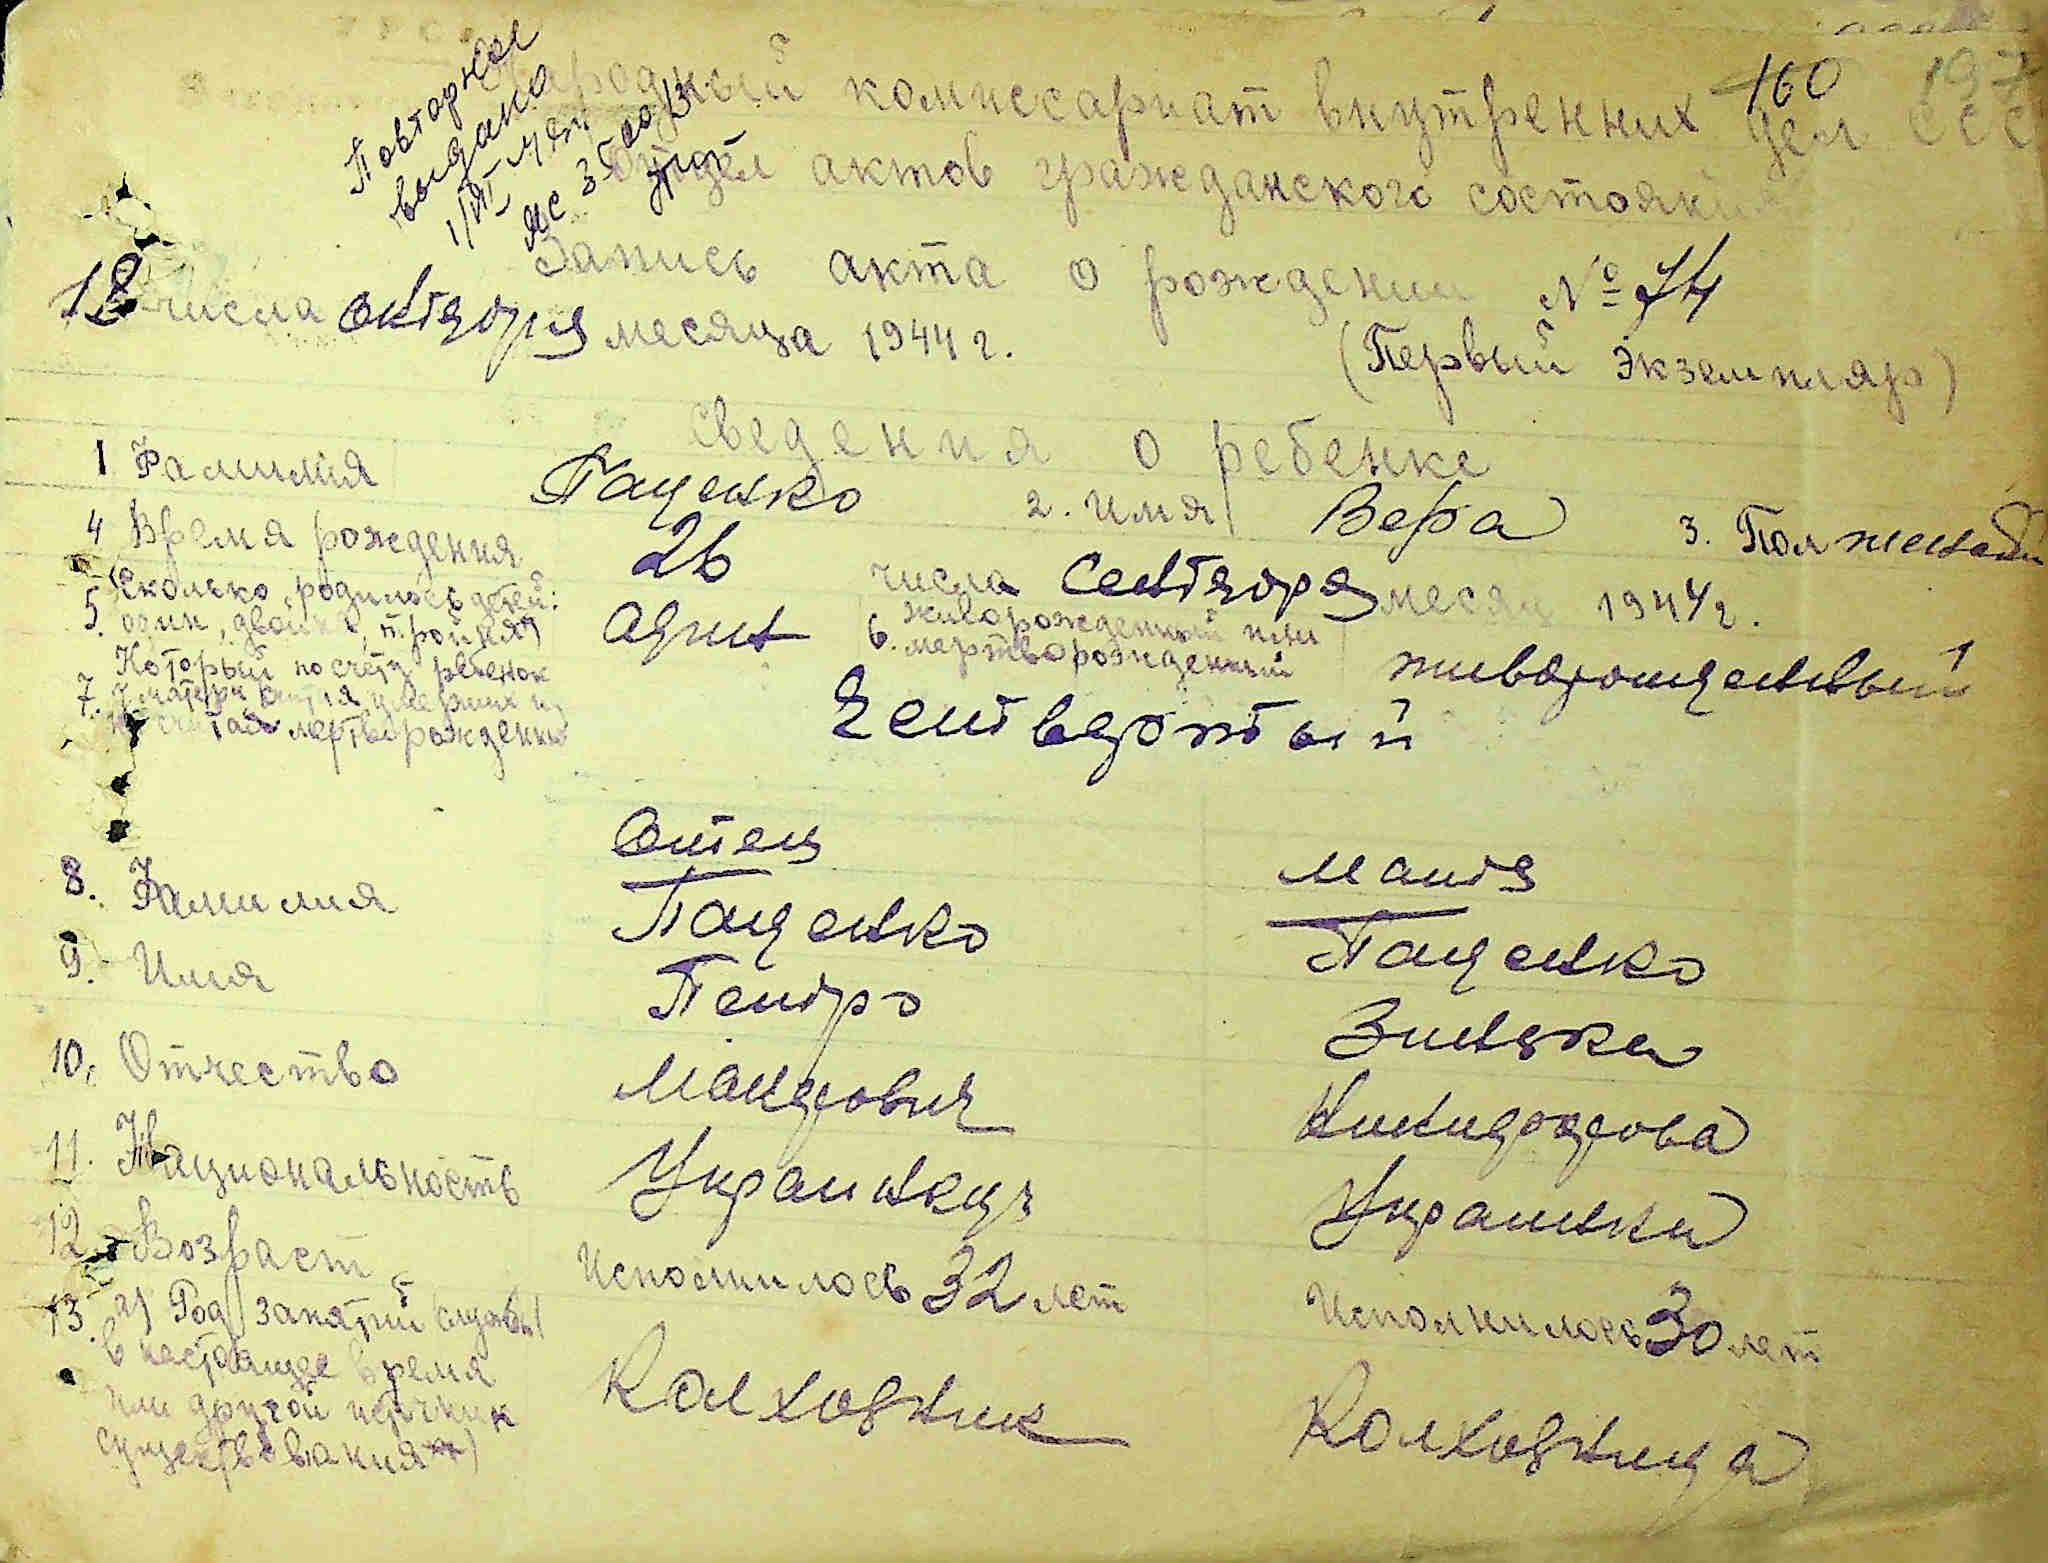 160 197
Повторное
выдано
Народный комиссариат внутренних дел ССС
Отдел актов гражданского состояния
Запись акта о рождении № 74
18 числа октября месяца 1944 г.
(Первый экземпляр)
Сведения о ребенке
1 Фамилия Пащенко 2. Имя Вера 3. Пол женский
4 Время рождения 26 числа сентября месяц 1944 г.
5. Сколько родилось детей:
один, двойня, тройня) один 6. живорожденный или
мертворожденный живорожденный
7. Который по счету ребенок
у матери
не считая мертворожденных Четвертый
Отец Мать
8. Фамилия Пащенко Пащенко
9. Имя Петро Зинька
10. Отчество
11. Национальность Украинец Украинка
12. Возраст Исполнилось 32 лет Исполнилось 30 лет
13. а) Род занятий службы
в настоящее время
или другой источник
существования**) Колхозник Колхозница